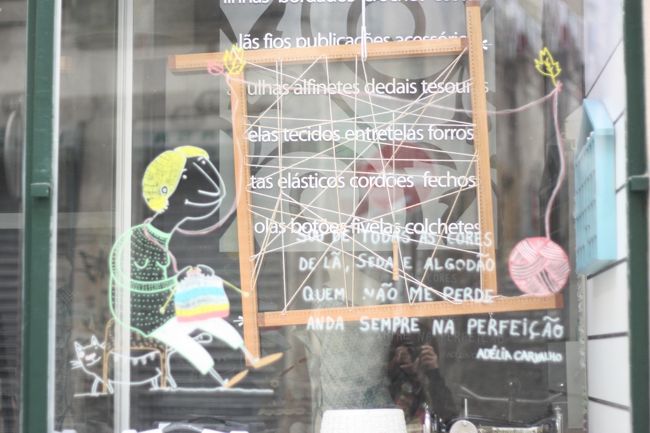 linhas bordados crochet
lãs fios publicações acessórios
ulhas alfinetes dedais tesouras
elas tecidos entretelas forros
tas elásticos cordões fechos
olas botões fivelas colchetes
SOU DE TODAS AS CORES
DE LÃ, SEDA E ALGODÃO
QUEM NÃO ME PERDE
ANDA SEMPRE NA PERFEIÇÃO
ADÉLIA CARVALHO